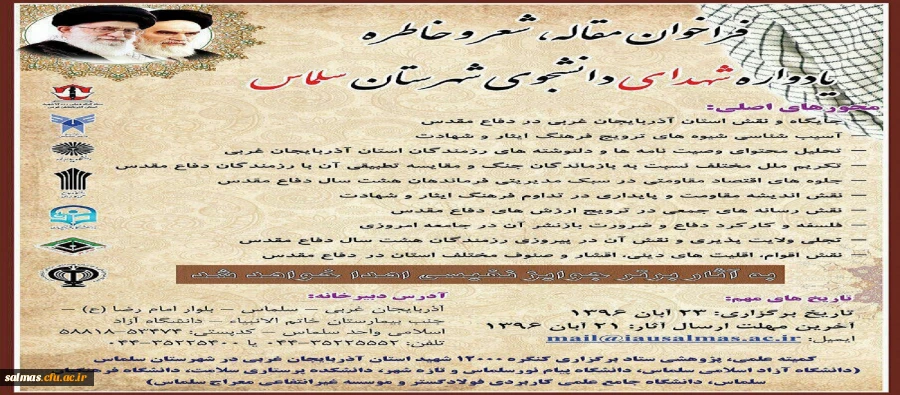 فراخوان مقاله، شعر و خاطره
یادواره شهدای دانشجوی شهرستان سلماس
محورهای اصلی:
جایگاه و نقش استان آذربایجان غربی در دفاع مقدس
آسیب شناسی شیوه های ترویج فرهنگ ایثار و شهادت
– تحلیل محتوای وصیت نامه ها و دلنوشته های رزمندگان استان آذربایجان غربی
– تکریم ملل مختلف نسبت به بازماندگان جنگ و مقایسه تطبیقی آن با رزمندگان دفاع مقدس
– جلوه های اقتصاد مقاومتی در سبک مدیریتی فرماندهان هشت سال دفاع مقدس
– نقش اندیشه مقاومت و پایداری در تداوم فرهنگ ایثار و شهادت
– نقش رسانه های جمعی در ترویج ارزش های دفاع مقدس
– فلسفه و کارکرد دفاع و ضرورت بازنشر آن در جامعه امروزی
– تجلی ولایت پذیری و نقش آن در پیروزی رزمندگان هشت سال دفاع مقدس
– نقش اقوام، اقلیت های دینی، اقشار و صنوف مختلف استان در دفاع مقدس
به آثار برتر جوایز نفیسی اهدا خواهد شد
تاریخ های مهم:
تاریخ برگزاری: ۲۳ آبان ۱۳۹۶
آخرین مهلت ارسال آثار: ۲۱ آبان ۱۳۹۶
ایمیل: mail@iausalmas.ac.ir
آدرس دبیرخانه:
آذربایجان غربی – سلماس – بلوار امام رضا (ع) –
جنب بیمارستان خاتم الانبیاء – دانشگاه آزاد
اسلامی واحد سلماس – کدپستی: ۵۳۴۷۴–۵۸۸۱۸
تلفن: ۳۵۲۲۵۵۵۲–۰۴۴ یا ۳۵۲۲۵۴۰۰–۰۴۴
کمیته علمی، پژوهشی ستاد برگزاری کنگره ۱۲۰۰۰ شهید استان آذربایجان غربی در شهرستان سلماس
(دانشگاه آزاد اسلامی سلماس، دانشگاه پیام نور سلماس و تازه شهر، دانشکده پرستاری سلامت، دانشگاه فرهنگیان
سلماس، دانشگاه جامع علمی کاربردی فولادگستر و موسسه غیرانتفاعی معراج سلماس)
salmas.cfu.ac.ir